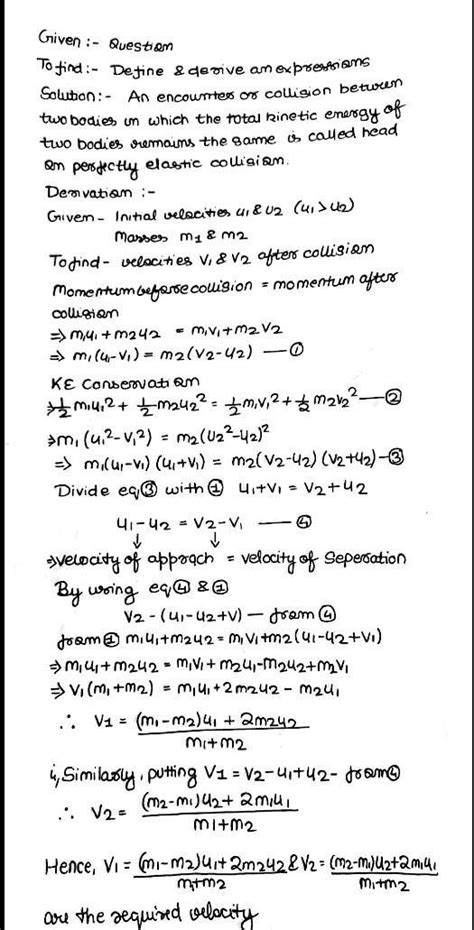 Given :- Question
To find :- Define & derive an expressions
Solution :- An encounter or collision between
two bodies in which the total kinetic energy of
two bodies remains the same is called head
on perfectly elastic collision.
Derivation :-
Given - Initial velocities u1 & u2 (u1 > u2)
Masses m1 & m2
To find - velocities V1 & V2 after collision
Momentum before collision = momentum after
collision
⇒ m1u1 + m2u2 = m1v1 + m2v2
⇒ m1(u1-v1) = m2(v2-u2) — ①
KE Conservation
⇒ 1/2 m1u1² + 1/2 m2u2² = 1/2 m1v1² + 1/2 m2v2² — ②
⇒ m1(u1²-v1²) = m2(v2²-u2)²
⇒ m1(u1-v1)(u1+v1) = m2(v2-u2)(v2+u2) - ③
Divide eq ③ with ① u1+v1 = v2+u2
u1-u2 = v2-v1 — ④
↓ ↓
⇒ velocity of approach = velocity of Seperation
By using eq ④ & ①
v2 - (u1-u2+v) — from ④
from ① m1u1+m2u2 = m1v1+m2(u1-u2+v1)
⇒ m1u1+m2u2 = m1v1+m2u1-m2u2+m2v1
⇒ v1(m1+m2) = m1u1+2m2u2 - m2u1
∴ V1 = (m1-m2)u1 + 2m2u2 / m1+m2
ly, Similarly, putting V1 = V2-u1+u2 - from ④
∴ V2 = (m2-m1)u2 + 2m1u1 / m1+m2
Hence, V1 = (m1-m2)u1+2m2u2 / m1+m2 & V2 = (m2-m1)u2+2m1u1 / m1+m2
are the required velocity